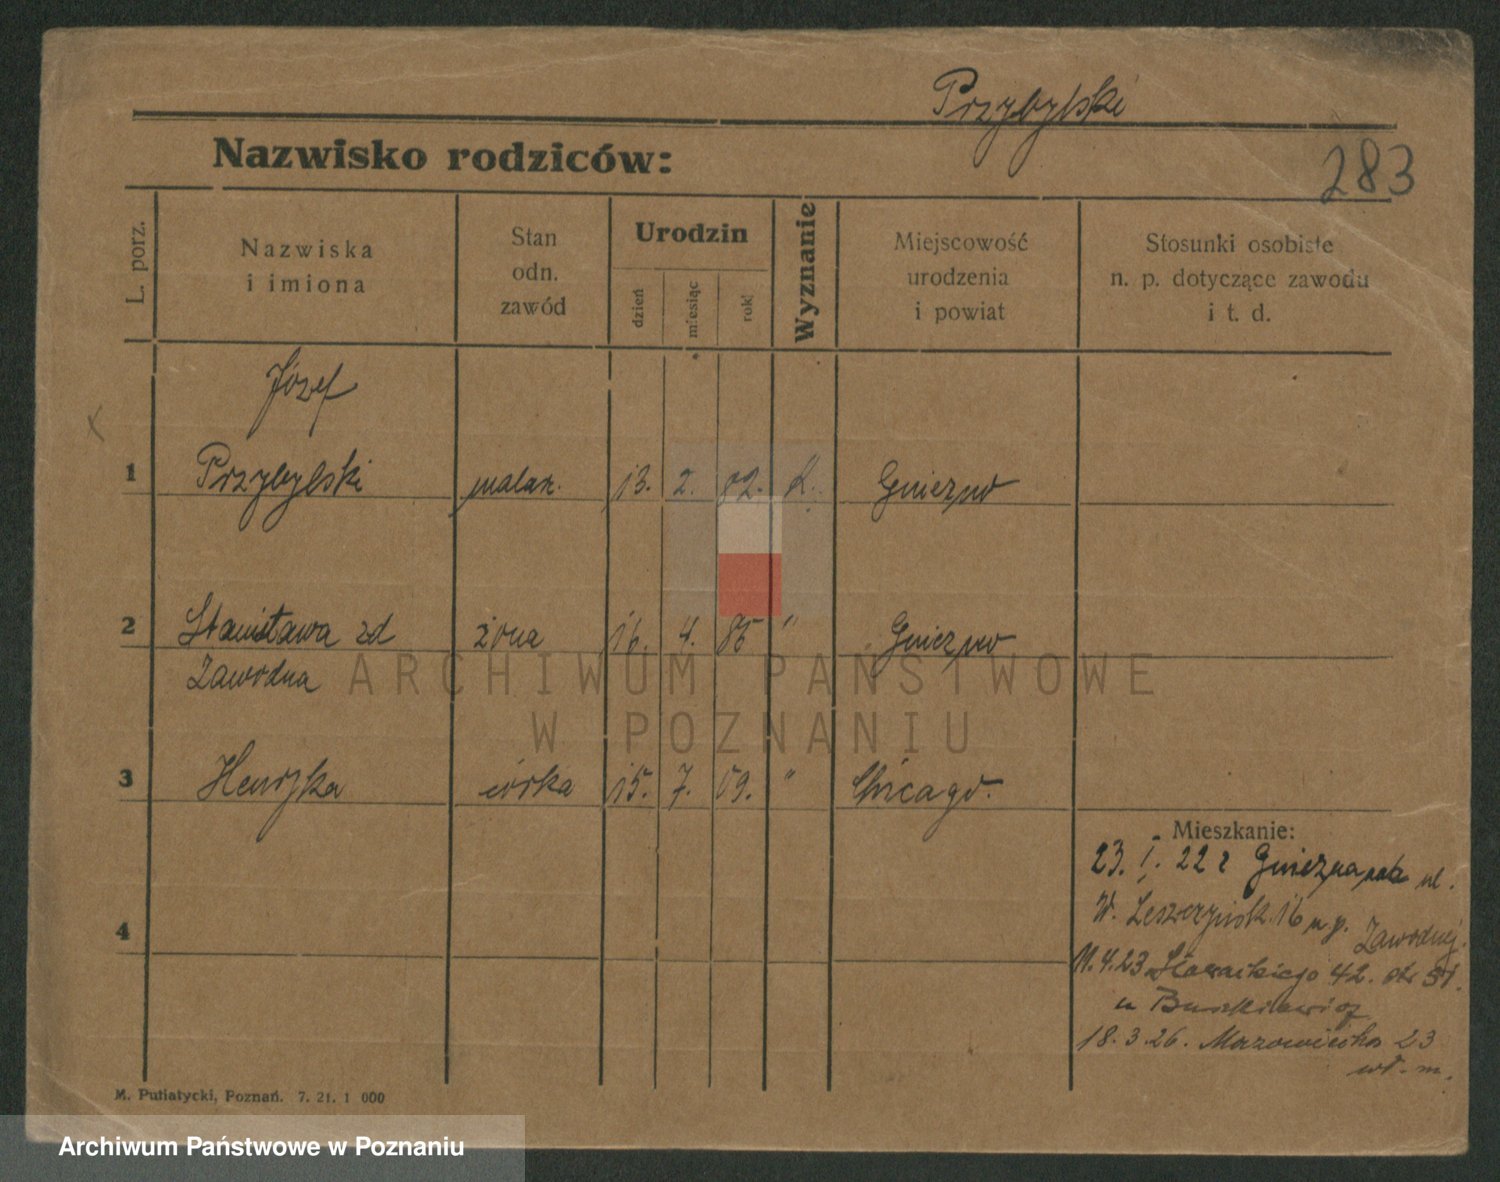 Przybylski
Nazwisko rodziców:
283
L. porz.
Nazwiska
i imiona
Stan
odn.
zawód
Urodzin
dzień
miesiąc
rok
Wyznanie
Miejscowość
urodzenia
i powiat
Stosunki osobiste
n. p. dotyczące zawodu
i t. d.
Józef
1 Przybylski malarz. 13. 2. 82. k. Gniezno
2 Stanisława zd żona 16. 4. 85 " Gniezno
Zawodna
3 Henryka córka 15. 7. 09. " Chicago.
Mieszkanie:
23. I. 22 z Gniezna ul.
W. Leszczyńsk. 16 u p. Zawodnej.
11.4.23 Słowackiego 42.
u
18.3.26. Mazowiecka 23
wł. m.
4
M. Putiatycki, Poznań. 7. 21. 1 000
ARCHIWUM PAŃSTWOWE
W POZNANIU
Archiwum Państwowe w Poznaniu